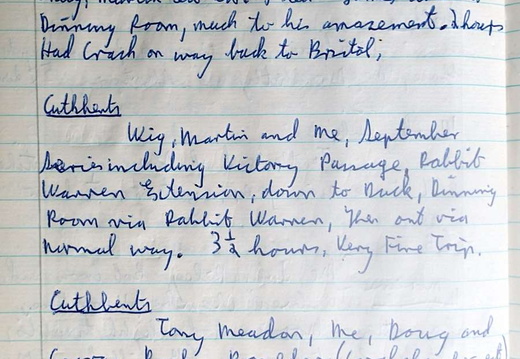 Dinning Room, much to his amazement. 2 hours
Had Crash on way back to Bristol;
Cuthberts
Wig, Martin and Me, September
Series including Victory Passage, Rabbit
Warren Extension, down to Duck, Dinning
Room via Rabbit Warren, then out via
normal way. 3 1/2 hours, Very Fine Trip.
Cuthberts
Tony Meadon, Me, Doug and